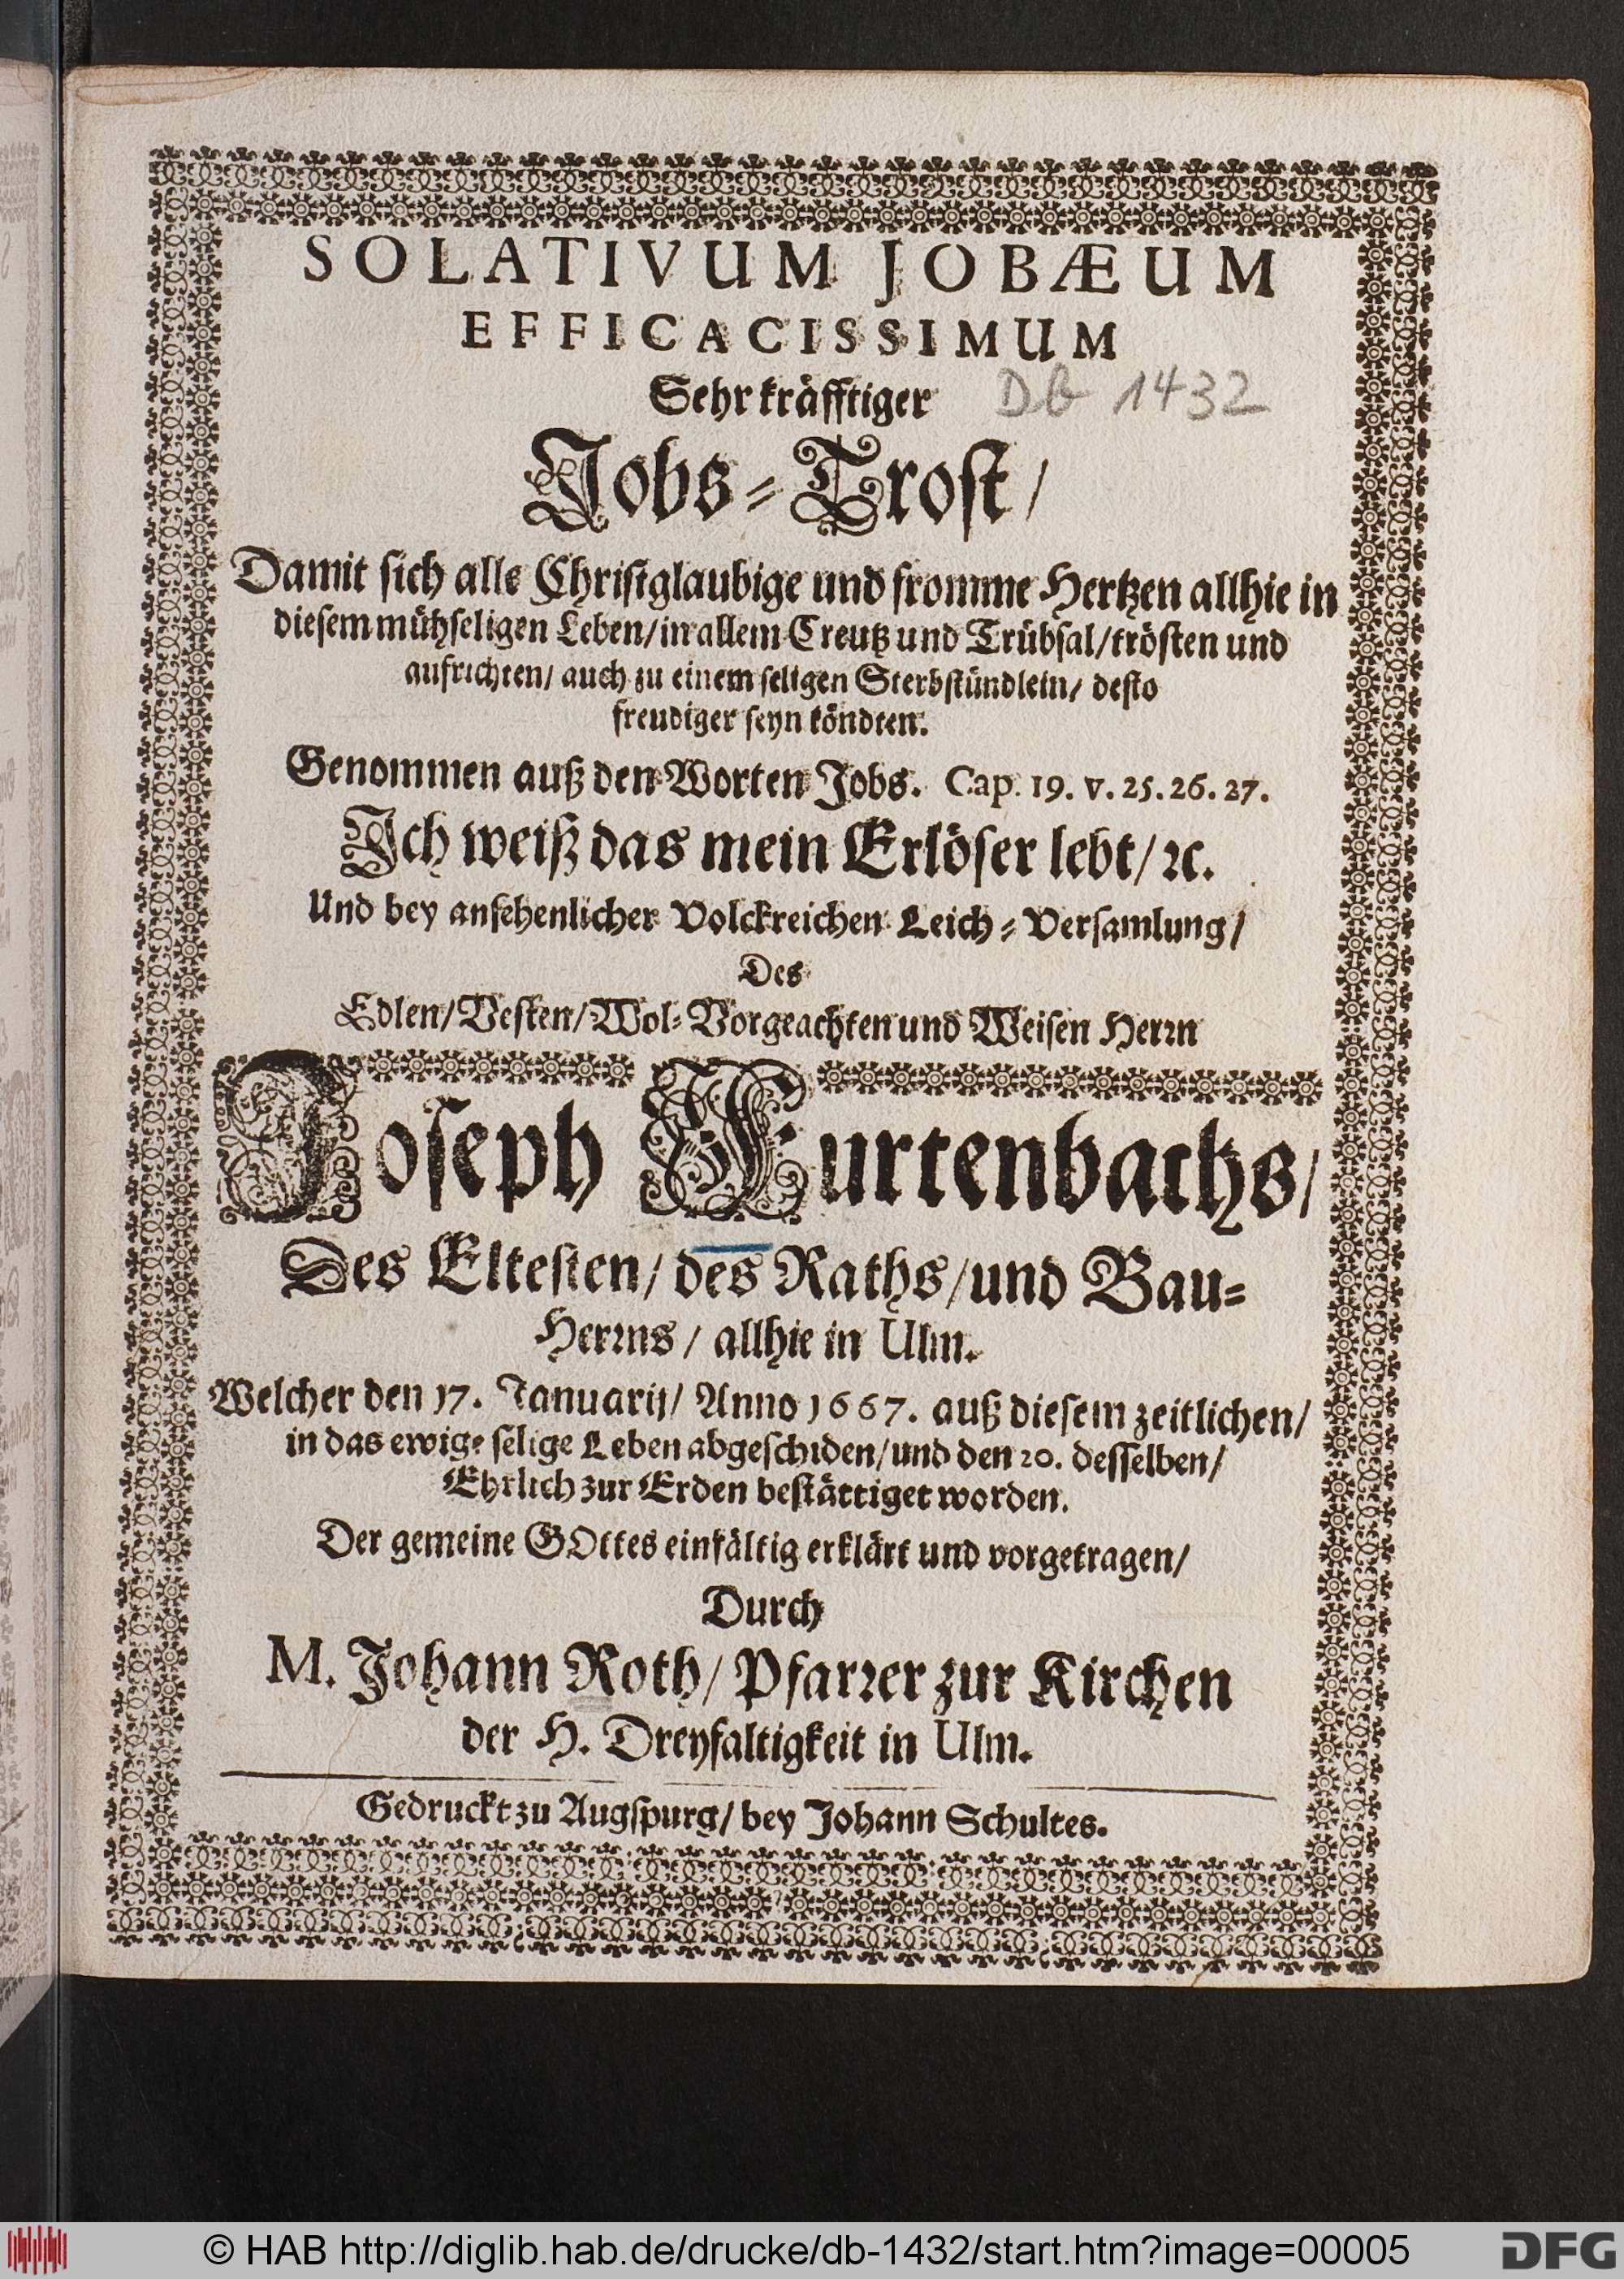 SOLATIVUM JOBÆUM
EFFICACISSIMUM
Sehr kräfftiger
Db 1432
Jobs-Trost/
Damit sich alle Christglaubige und fromme Hertzen allhie in
diesem mühseligen Leben/in allem Creutz und Trübsal/trösten und
aufrichten/ auch zu einem seligen Sterbstündlein/ desto
freudiger seyn köndten.
Genommen auß den Worten Jobs. Cap. 19. v. 25. 26. 27.
Ich weiß das mein Erlöser lebt/ ꝛc.
Und bey ansehenlicher Volckreichen Leich-Versamlung/
Des
Edlen/Vesten/Wol-Vorgeachten und Weisen Herꝛn
Joseph Furtenbachs/
Des Eltesten/ des Raths/und Bau-
Herꝛns/ allhie in Ulm.
Welcher den 17. Januarij/ Anno 1667. auß diesem zeitlichen/
in das ewige selige Leben abgeschiden/und den 20. desselben/
Ehrlich zur Erden bestättiget worden.
Der gemeine GOttes einfältig erklärt und vorgetragen/
Durch
M. Johann Roth/ Pfarꝛer zur Kirchen
der H. Dreyfaltigkeit in Ulm.
Gedruckt zu Augspurg/ bey Johann Schultes.
© HAB http://diglib.hab.de/drucke/db-1432/start.htm?image=00005
DFG